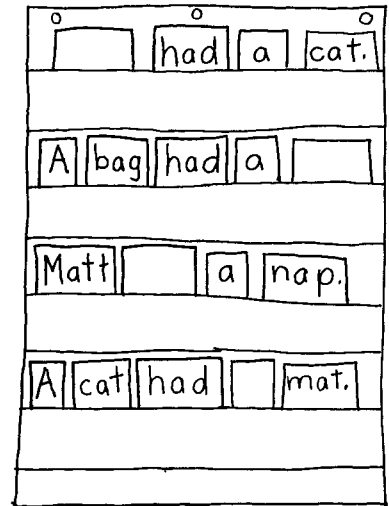 had a cat.
A bag had a
Matt a nap.
A cat had mat.